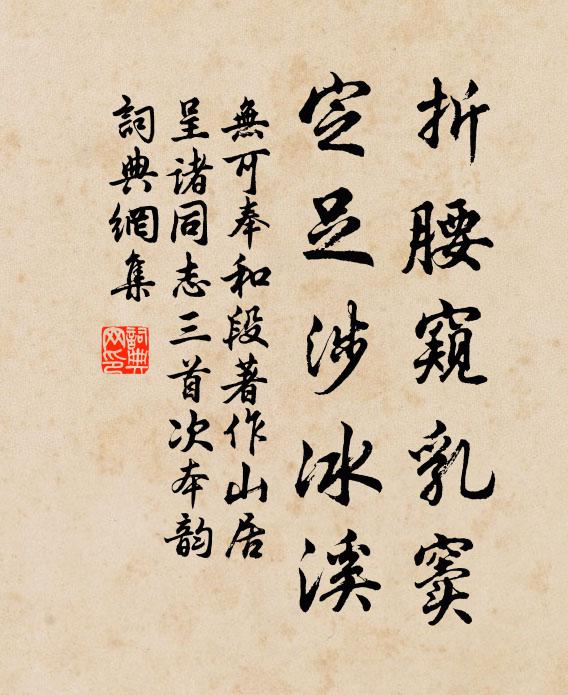 折腰窺乳竇
定足涉冰溪
無可奉和段著作山居
呈諸同志三首次本韵
詞典網集
詞典網印